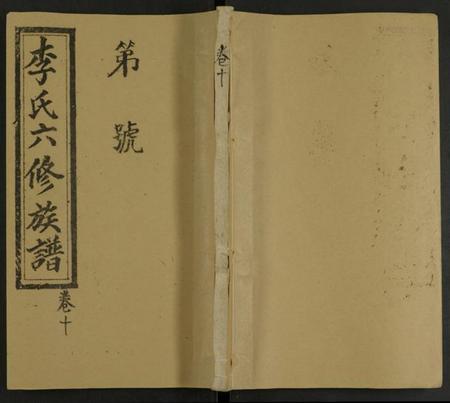 李氏六修族譜
卷十
第號
卷十